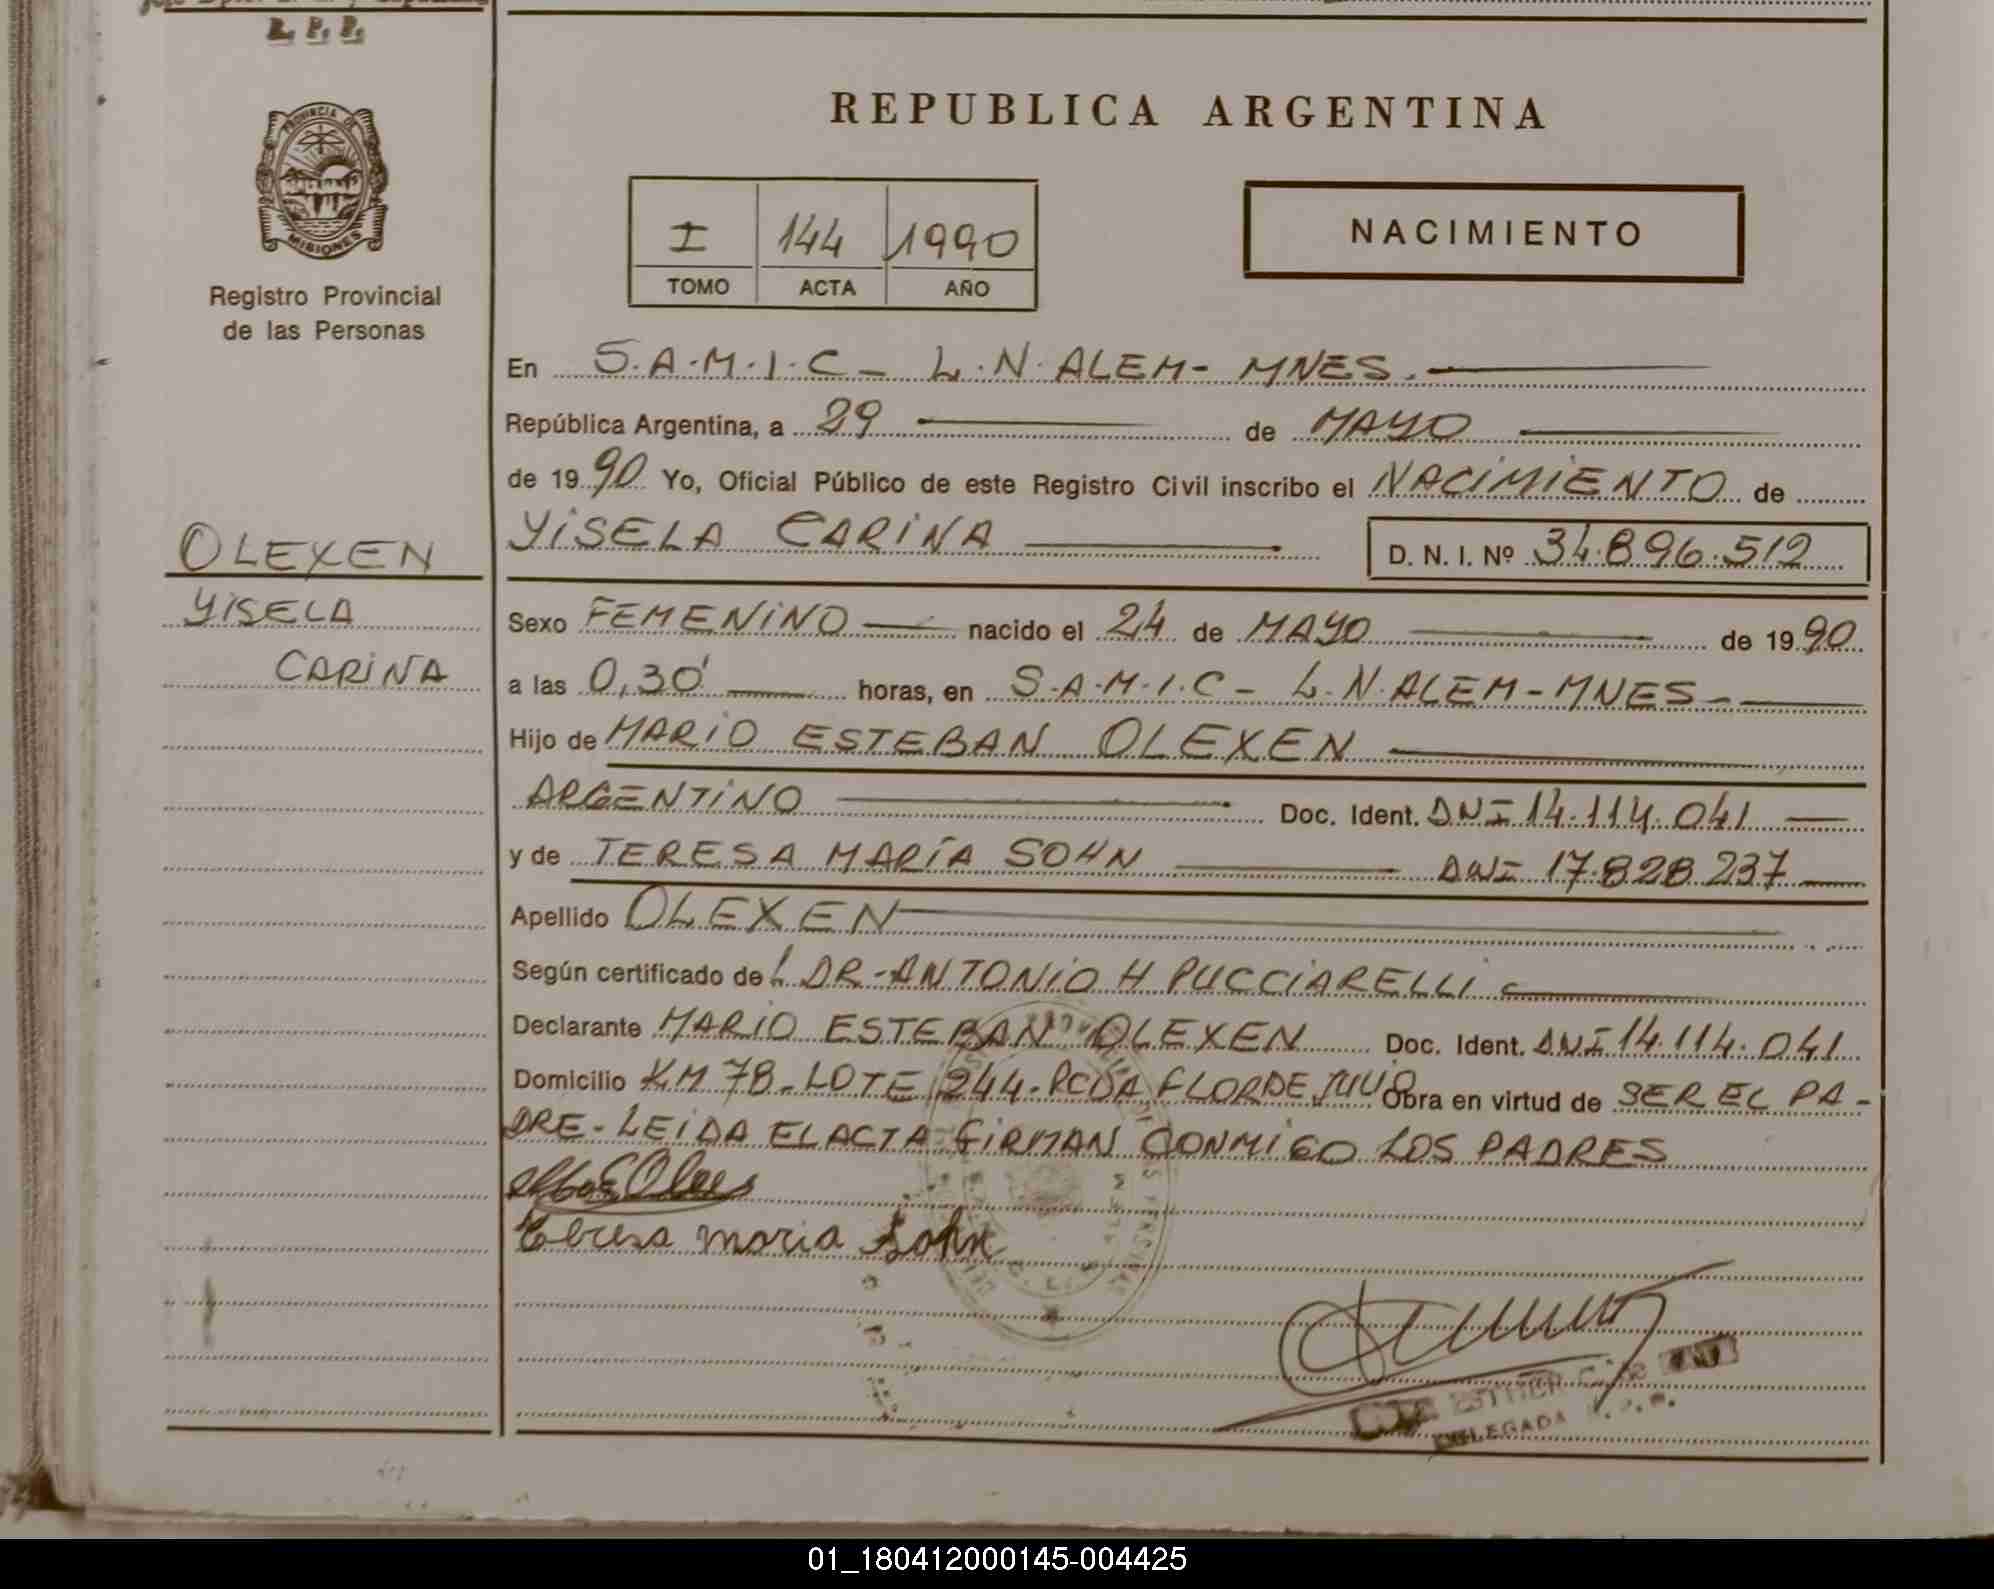 R. P. P.
PROVINCIA DE
MISIONES
Registro Provincial
de las Personas
OLEXEN
YISELA
CARINA
REPUBLICA ARGENTINA
I 144 1990
TOMO ACTA AÑO
NACIMIENTO
En S.A.M.I.C - L.N. ALEM - MNES.
República Argentina, a 29 de MAYO
de 1990 Yo, Oficial Público de este Registro Civil inscribo el NACIMIENTO de
YISELA CARINA D. N. I. Nº 34.896.512
Sexo FEMENINO nacido el 24 de MAYO de 1990
a las 0,30' horas, en S.A.M.I.C - L.N. ALEM - MNES -
Hijo de MARIO ESTEBAN OLEXEN
ARGENTINO Doc. Ident. DNI 14.114.041
y de TERESA MARÍA SOHN DNI 17.828.237
Apellido OLEXEN
Según certificado del DR-ANTONIO H PUCCIARELLI
Declarante MARIO ESTEBAN OLEXEN Doc. Ident. DNI 14.114.041
Domicilio KM 78 - LOTE 244 - PCDA FLOR DE Obra en virtud de SER EL PA-
DRE - LEIDA EL ACTA FIRMAN CONMIGO LOS PADRES
Teresa maria Sohn
ESTHER
DELEGADA
01_180412000145-004425